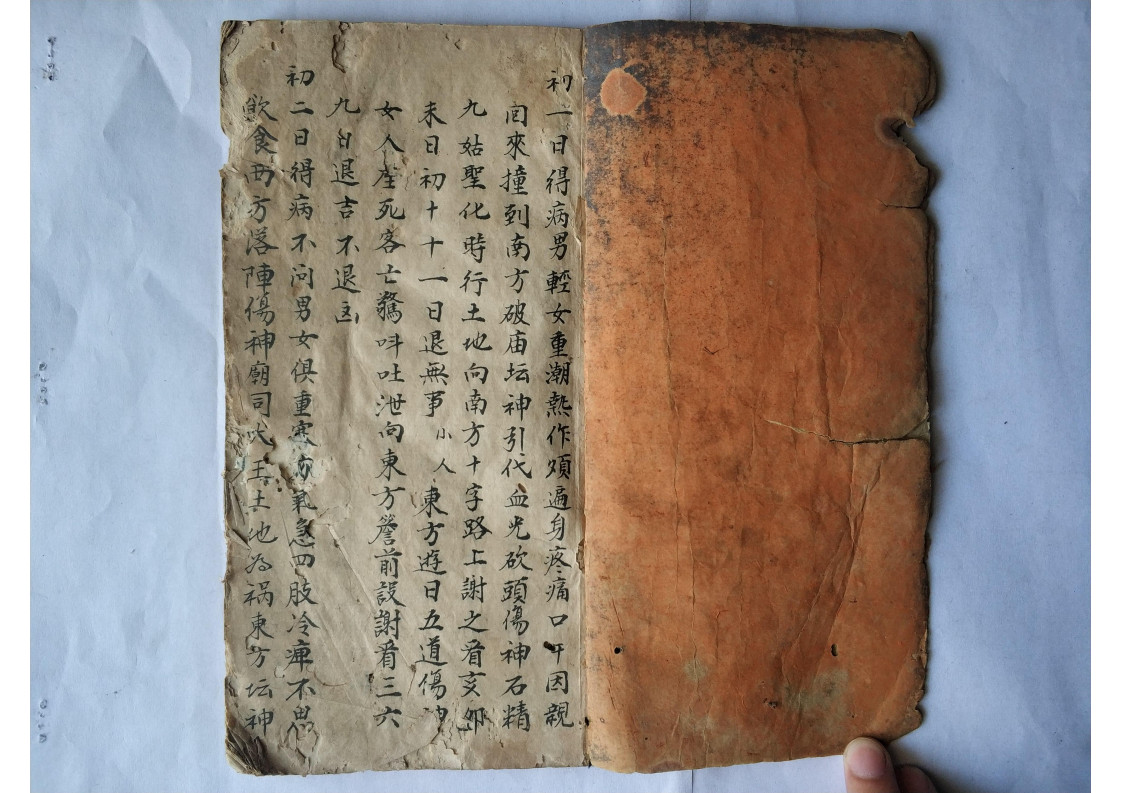 初一日得病男輕女重潮熱作煩遍身疼痛口干因親
自來撞到南方破庙坛神引代血光砍頭傷神石精
九姑聖化時行土地向南方十字路上謝之看亥卯
未日初十十一日退無事小人東方遊日五道傷神
女人產死客亡驚呌吐泄向東方簷前設謝看三六
九日退吉不退凶
初二日得病不问男女俱重寒氣急四肢冷痺不思
飲食西方落陣傷神廟司土地為祸東方坛神